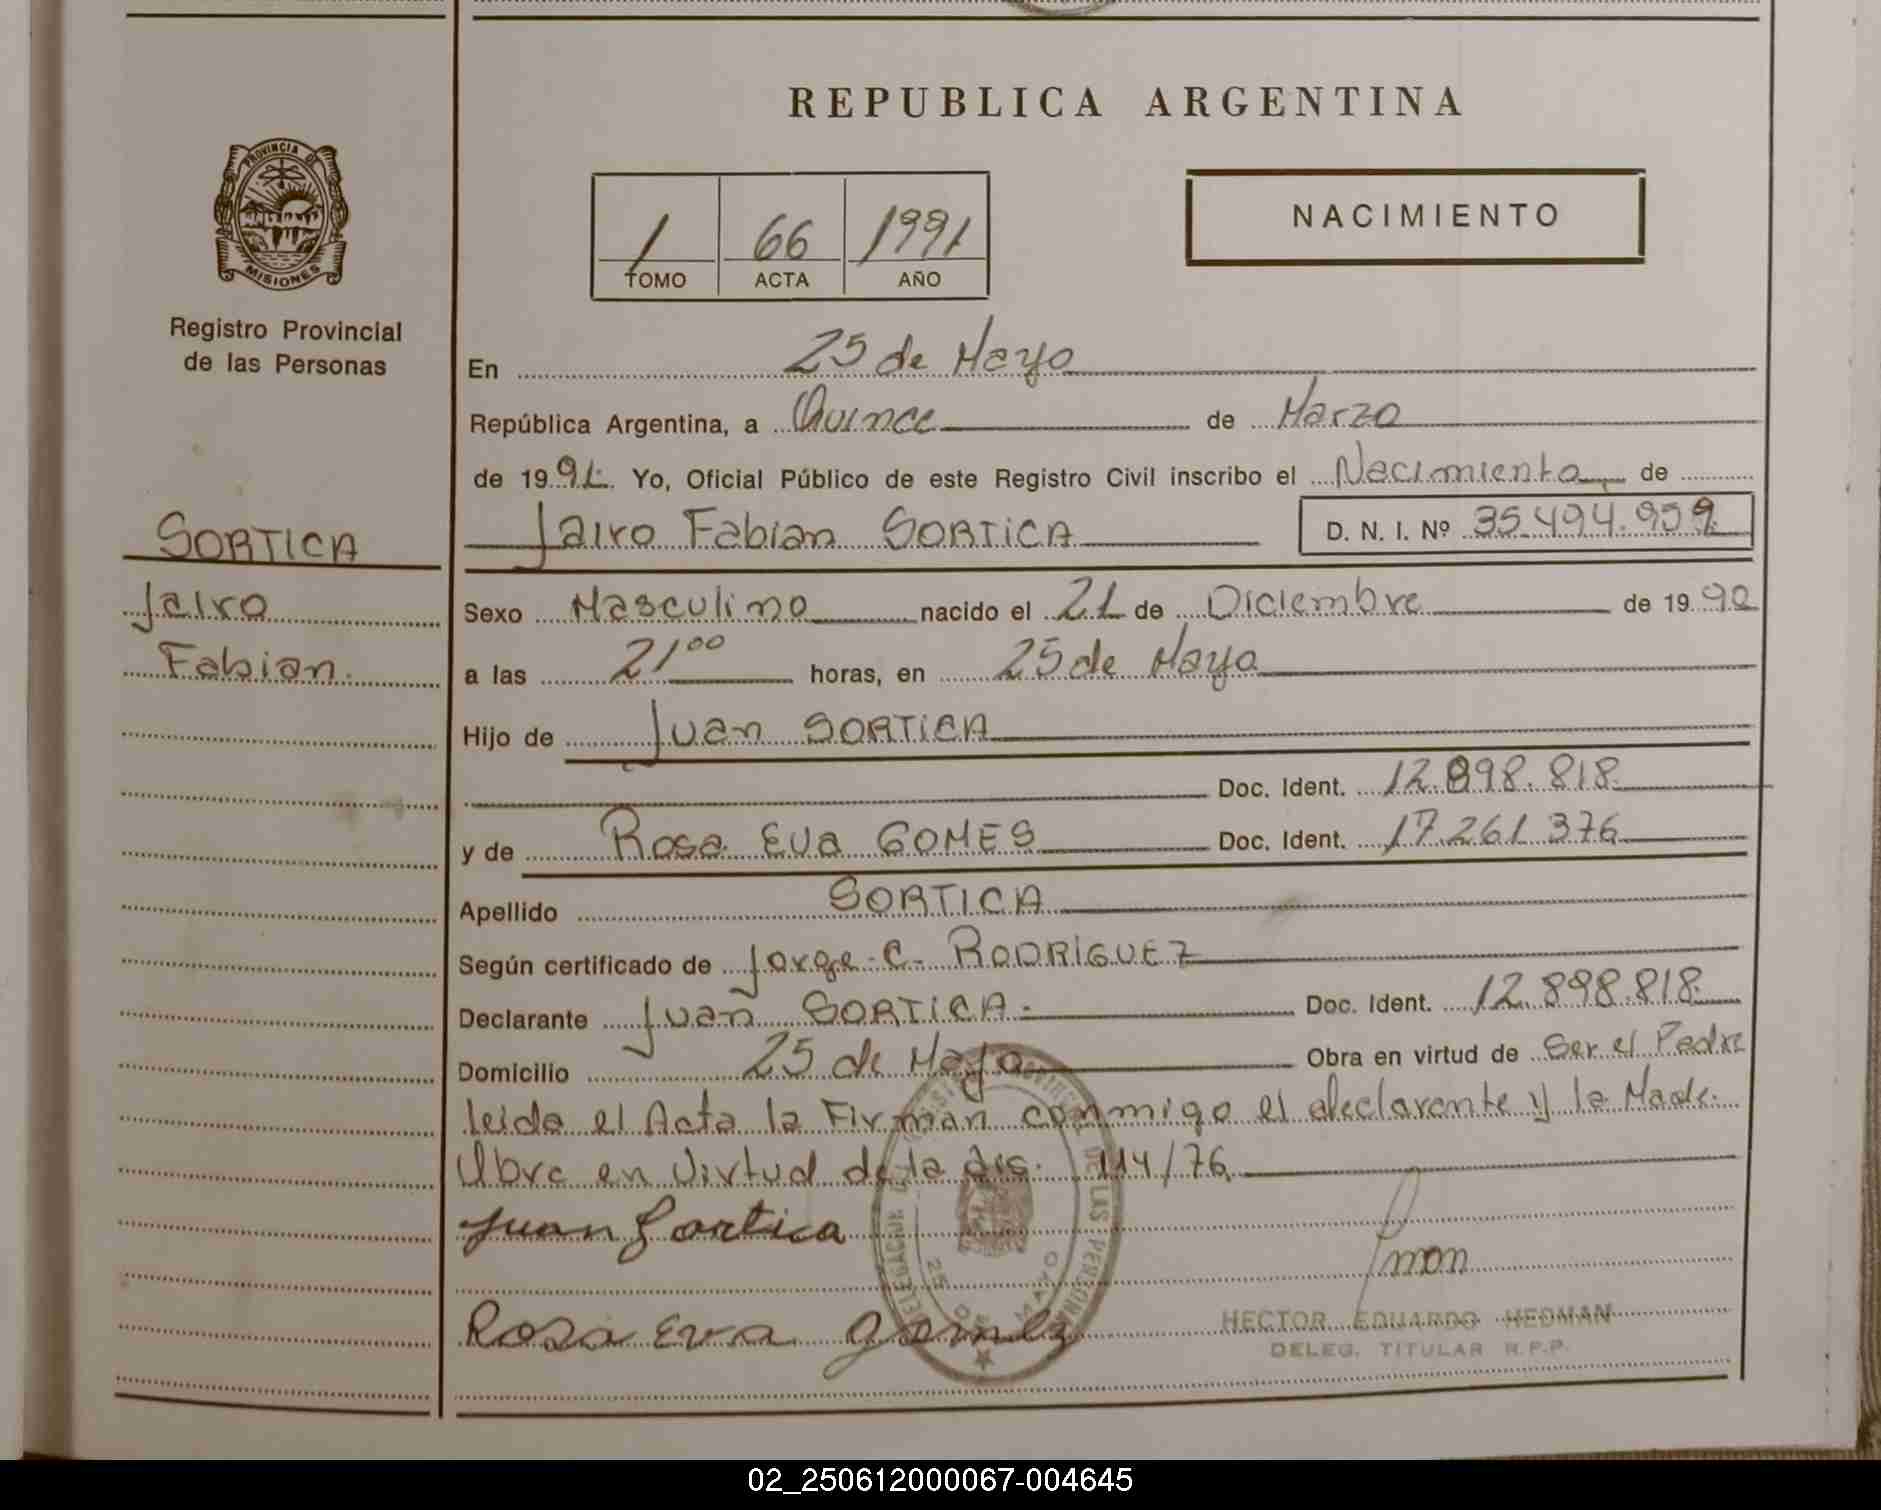 REPUBLICA ARGENTINA
PROVINCIA DE
MISIONES
Registro Provincial
de las Personas
1 66 1991
TOMO ACTA AÑO
NACIMIENTO
En 25 de Mayo
República Argentina, a Quince de Marzo
de 1991. Yo, Oficial Público de este Registro Civil inscribo el Nacimiento de
Jairo Fabian SORTICA D. N. I. Nº 35.494.959
SORTICA
Jairo
Fabian.
Sexo Masculino nacido el 21 de Diciembre de 1990
a las 21 00 horas, en 25 de Mayo
Hijo de Juan SORTICA
Doc. Ident. 12.898.818.
y de Rosa Eva GOMES Doc. Ident. 17.261.376
Apellido SORTICA
Según certificado de Jorge C. RODRIGUEZ
Declarante Juan SORTICA. Doc. Ident. 12.898.818.
Domicilio 25 de Mayo Obra en virtud de Ser el Padre
leida el Acta la Firman conmigo el declarante y la Madr.
Obre en Virtud de la dis. 114/76.
Juan Sortica
Rosa Eva Gomez
DE LAS PERSONAS
25 DE MAYO
HECTOR EDUARDO HEDMAN
DELEG. TITULAR R.P.P.
02_250612000067-004645